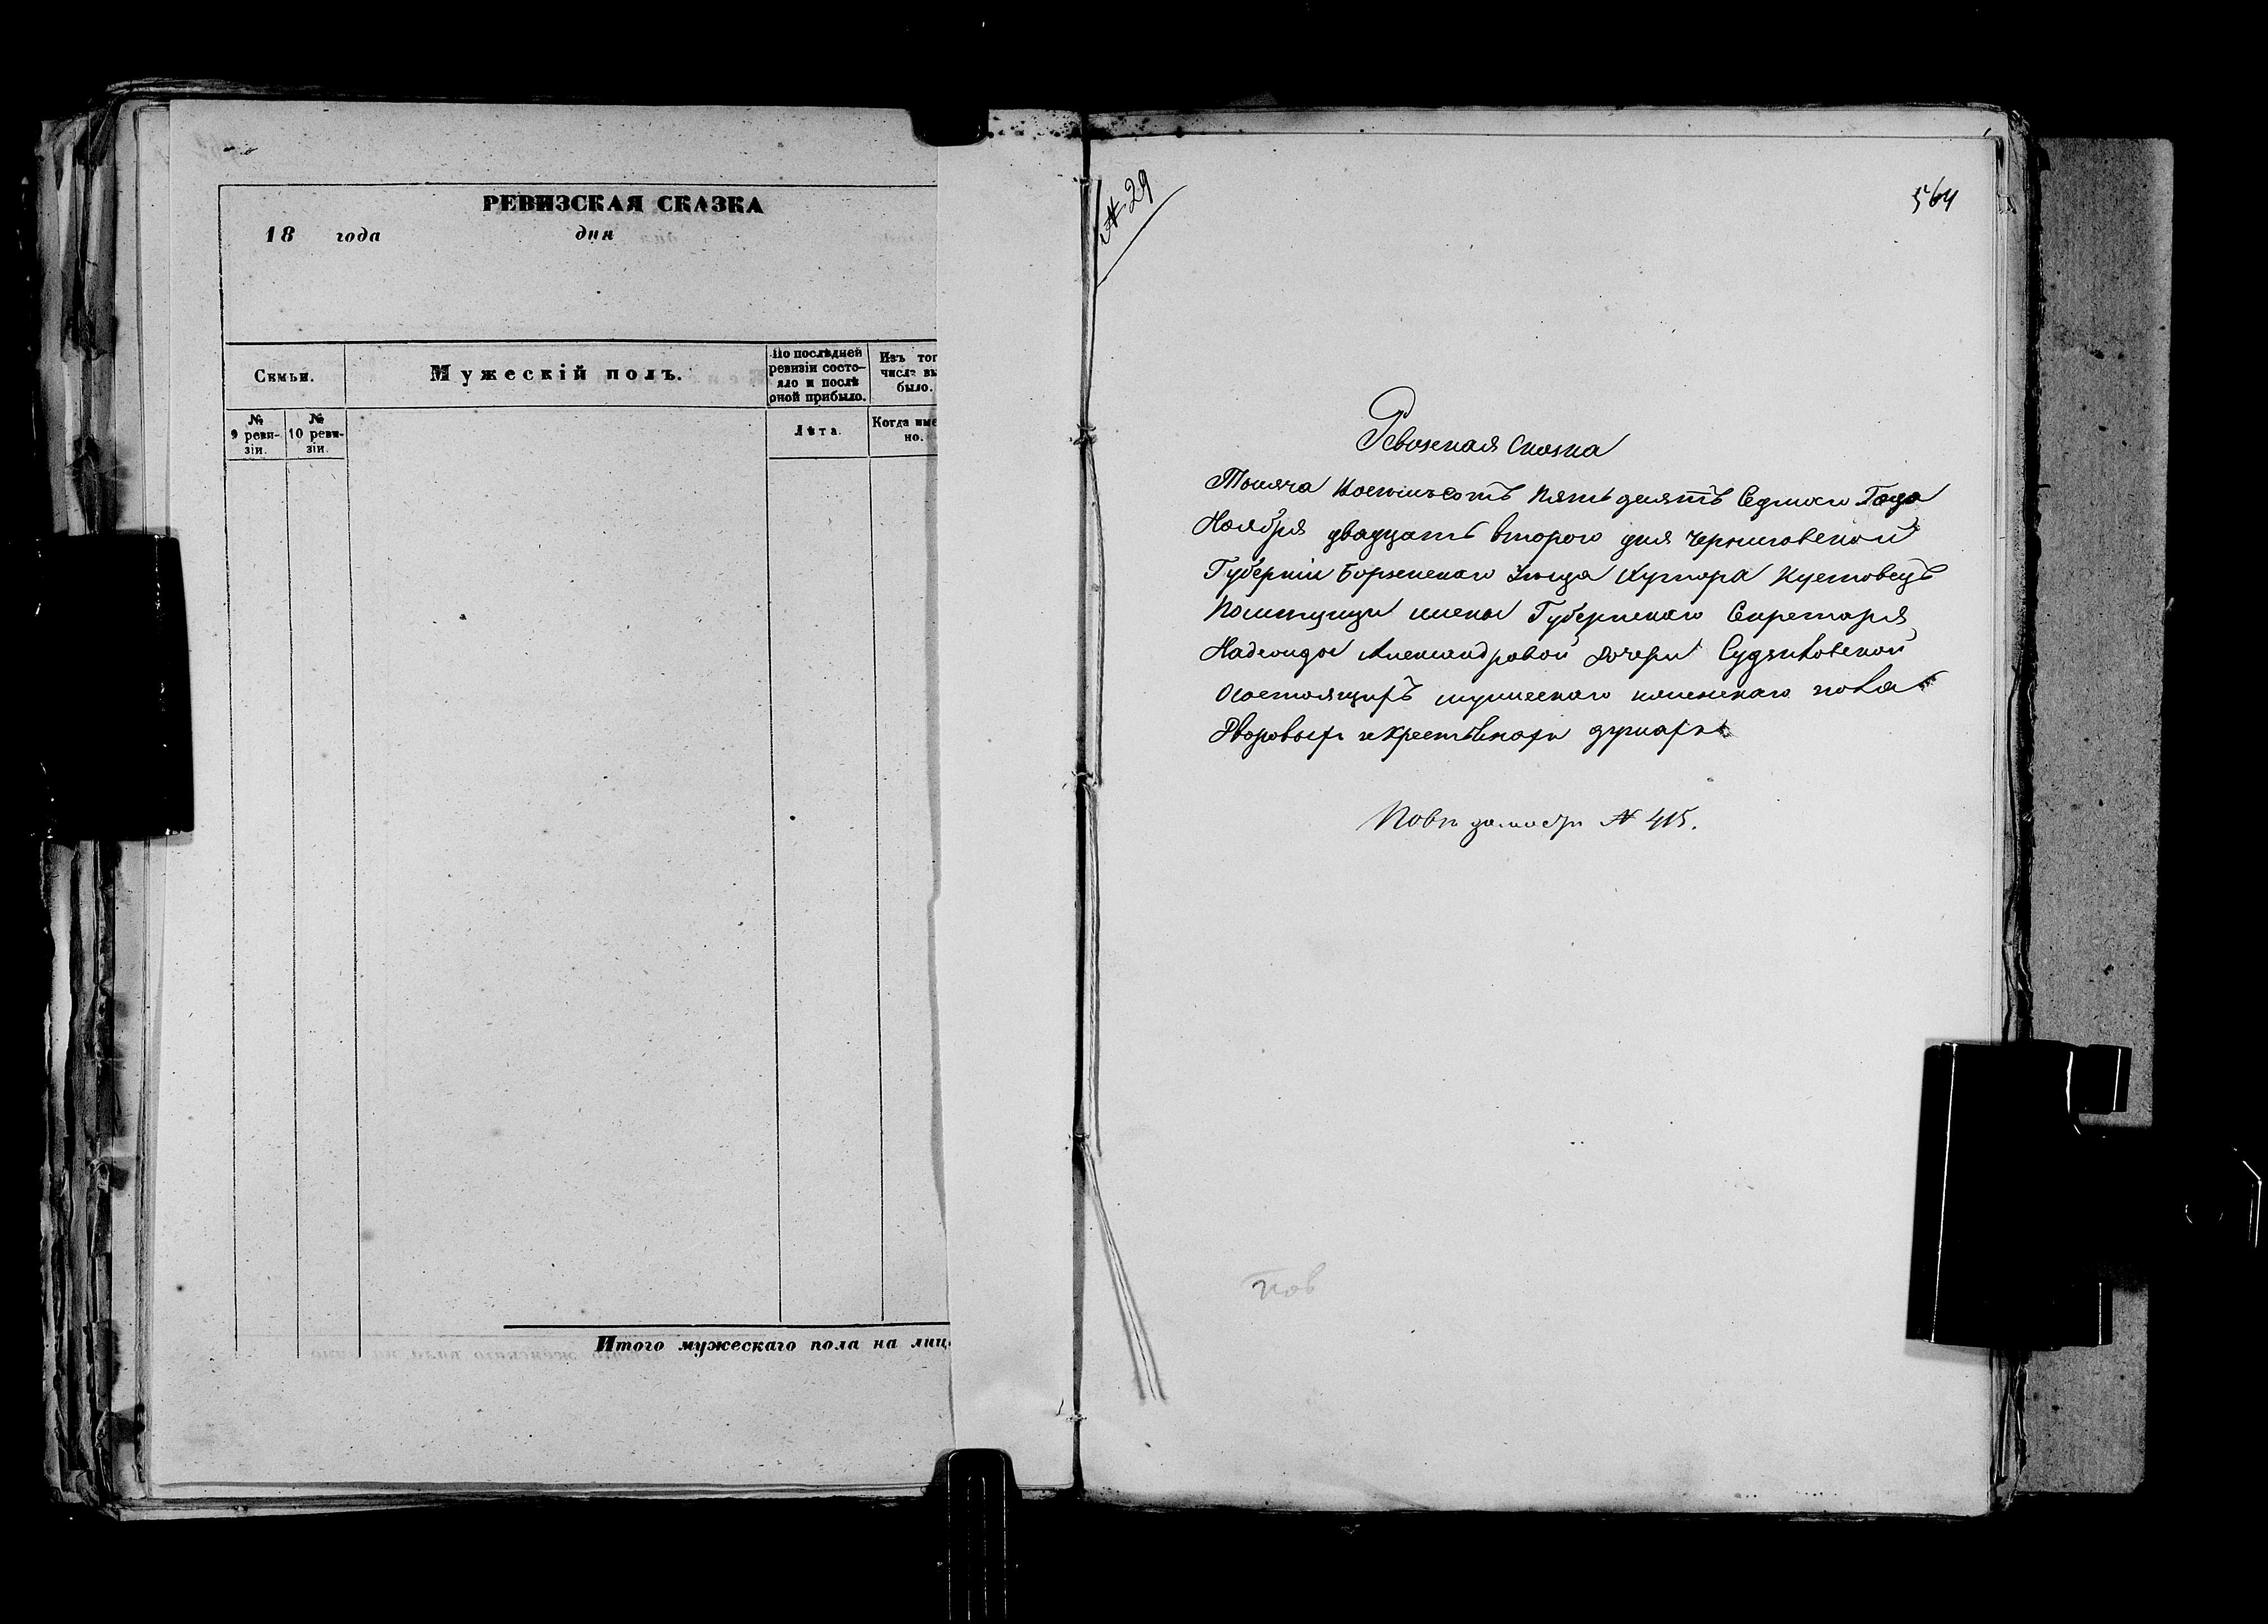 РЕВИЗСКАЯ СКАЗКА
18 года дня
Семьи.
Мужескій полъ.
По послѣдней
ревизіи состо-
яло и послѣ
оной прибыло.
Изъ тог
числа вы
было.
№
9 реви-
зіи.
№
10 реви-
зіи.
Лѣта.
Когда име
но.
Итого мужескаго пола на лиц
№ 29
564
Ревизская сказка
Тысяча восемьсотъ пятьдесятъ Седмого Года
Ноября двадцать второго дня Черниговской
Губерніи Борзенского Уезда Хутора Кустовецъ
Помещицы жены Губернского Секретаря
Надежды Александровой дочери
О состоящихъ мужеского и женского пола
Дворовыхъ и крестьянахъ душахъ
По ведомости № 415.